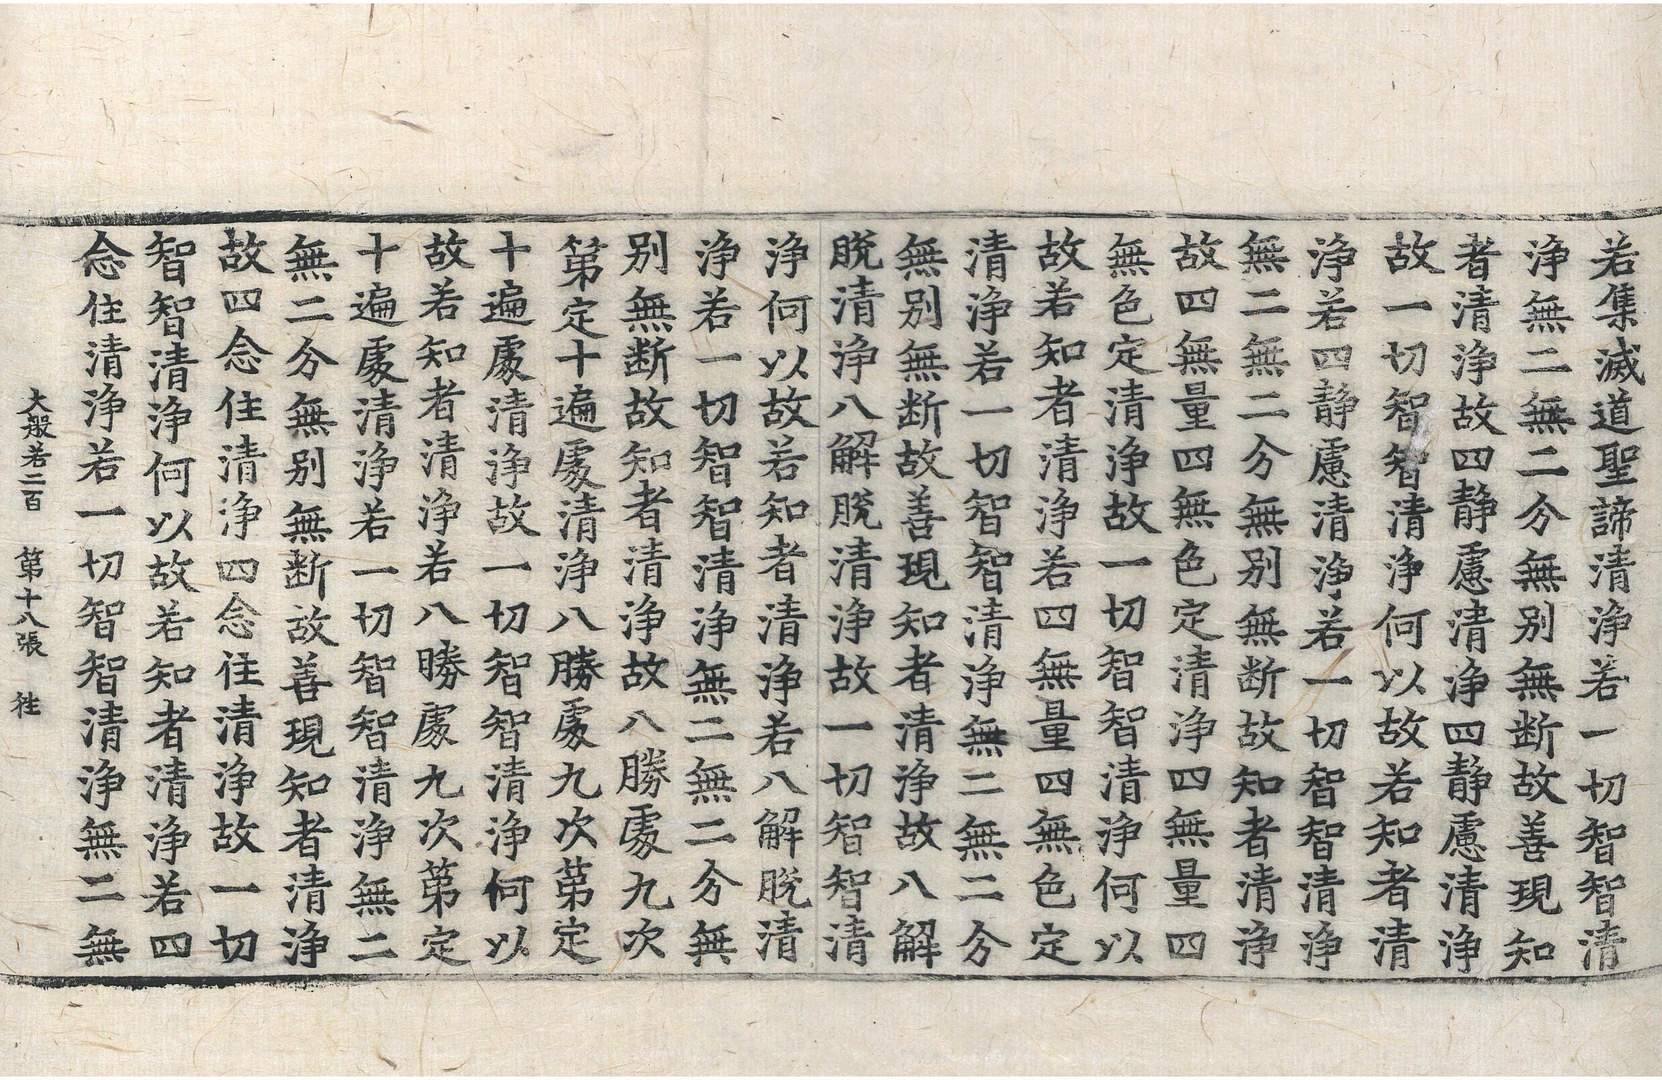 若集滅道聖諦清淨若一切智智清
淨無二無二分無別無断故善現知
者清淨故四静慮清淨四静慮清淨
故一切智智清淨何以故若知者清
淨若四静慮清淨若一切智智清淨
無二無二分無別無断故知者清淨
故四無量四無色定清淨四無量四
無色定清淨故一切智智清淨何以
故若知者清淨若四無量四無色定
清淨若一切智智清淨無二無二分
無別無断故善現知者清淨故八解
脫清淨八解脫清淨故一切智智清
淨何以故若知者清淨若八解脫清
淨若一切智智清淨無二無二分無
別無断故知者清淨故八勝處九次
第定十遍處清淨八勝處九次第定
十遍處清淨故一切智智清淨何以
故若知者清淨若八勝處九次第定
十遍處清淨若一切智智清淨無二
無二分無別無断故善現知者清淨
故四念住清淨四念住清淨故一切
智智清淨何以故若知者清淨若四
念住清淨若一切智智清淨無二無
大般若二百 第十八張 往